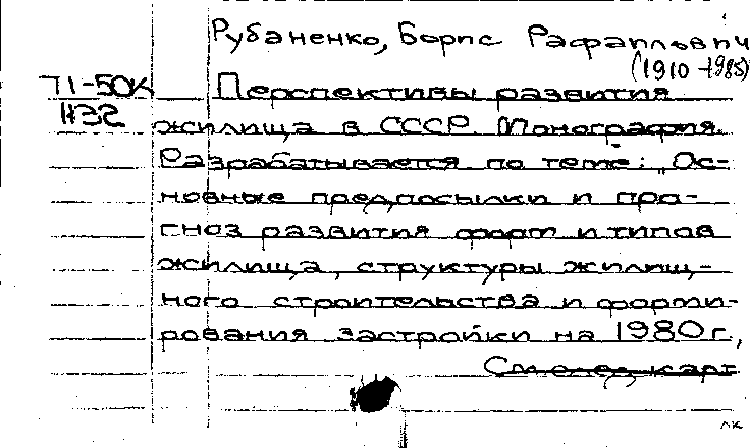 Рубаненко, Борис Рафаильевич
(1910-1985)
71-50К
1132
Перспективы развития
жилища в СССР. Монография.
Разрабатывается по теме: „Ос-
новные предпосылки и про-
гноз развития форм и типов
жилища, структуры жилищ-
ного строительства и форми-
рования застройки на 1980 г.,
См. след. карт
лк